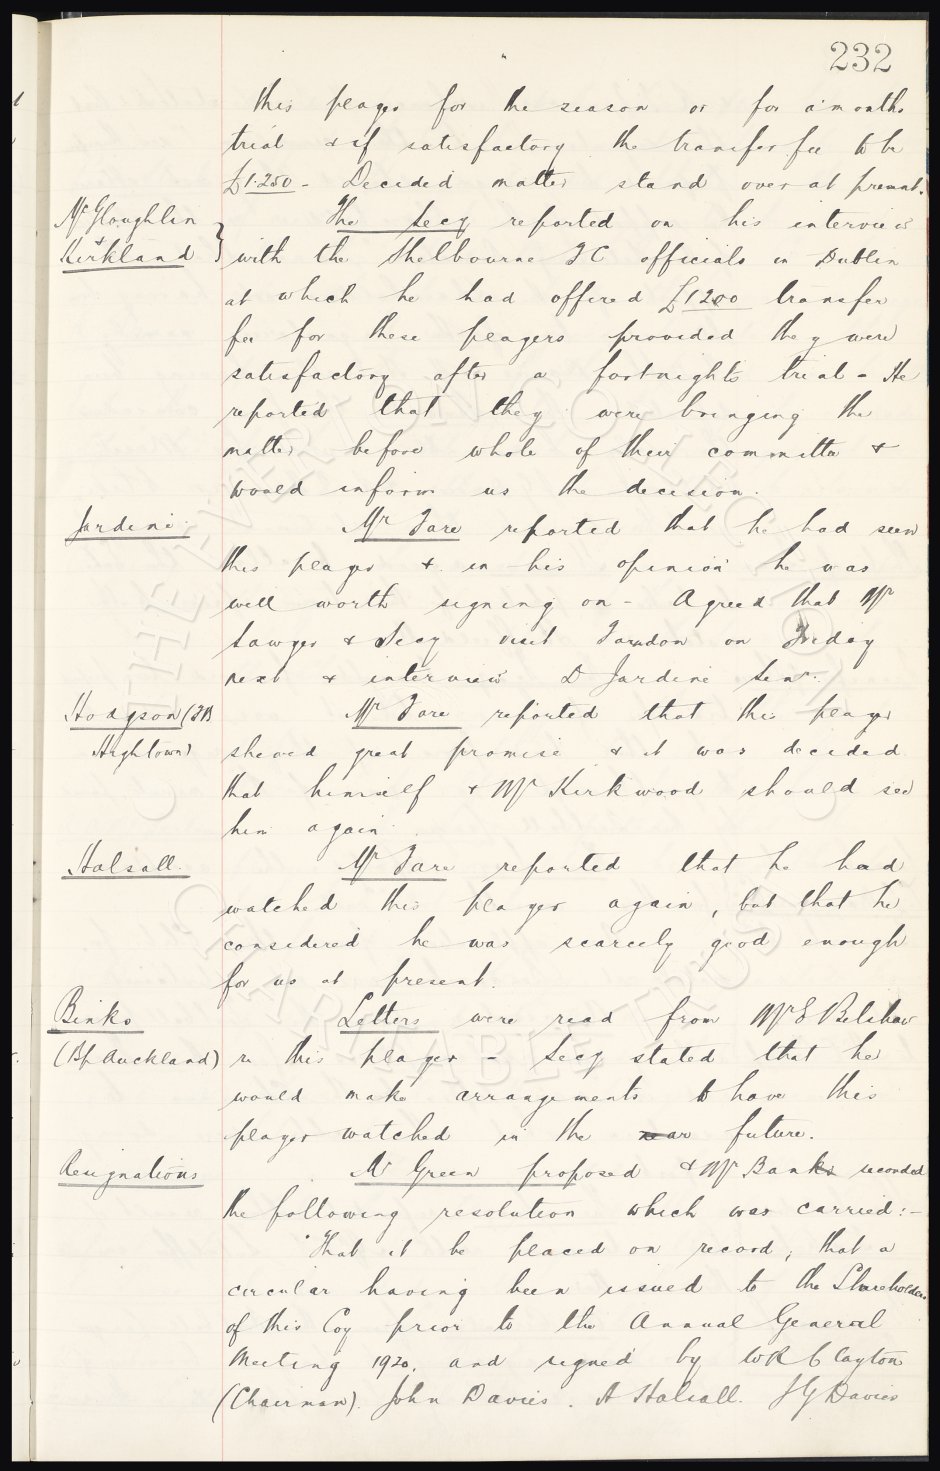 232
this player for the season or for a months
trial & if satisfactory the transfer fee to be
£1250 - Decided matter stand over at present.
McGloughlin & Kirkland } The Secy reported on his interview
with the Shelbourne FC officials in Dublin
at which he had offered £1200 transfer
fee for these players provided they were
satisfactory after a fortnights trial - He
reported that they were bringing the
matter before whole of their committee &
would inform us the decision.
Jardine. Mr Fare reported that he had seen
this player & in his opinion he was
well worth signing on - Agreed that Mr
Sawyer & Secy visit Farndon on Friday
next & interview D Jardine Senr.
Hodgson (FB Mr Fare reported that this player
Hightown) showed great promise & it was decided
that himself & Mr Kirkwood should see
him again.
Halsall. Mr Fare reported that he had
watched this player again, but that he
considered he was scarcely good enough
for us at present.
Binks Letters were read from Mr E Belshaw
(Bp Auckland) re this player - Secy stated that he
would make arrangements to have this
player watched in the near future.
Resignations Mr Green proposed & Mr Banks seconded
the following resolution which was carried:-
"That it be placed on record, that a
circular having been issued to the Shareholders
of this Coy prior to the Annual General
Meeting 1920, and signed by WR Clayton
(Chairman). John Davies. A Halsall. J G Davies
THE EVERTON COLLECTION
CHARITABLE TRUST